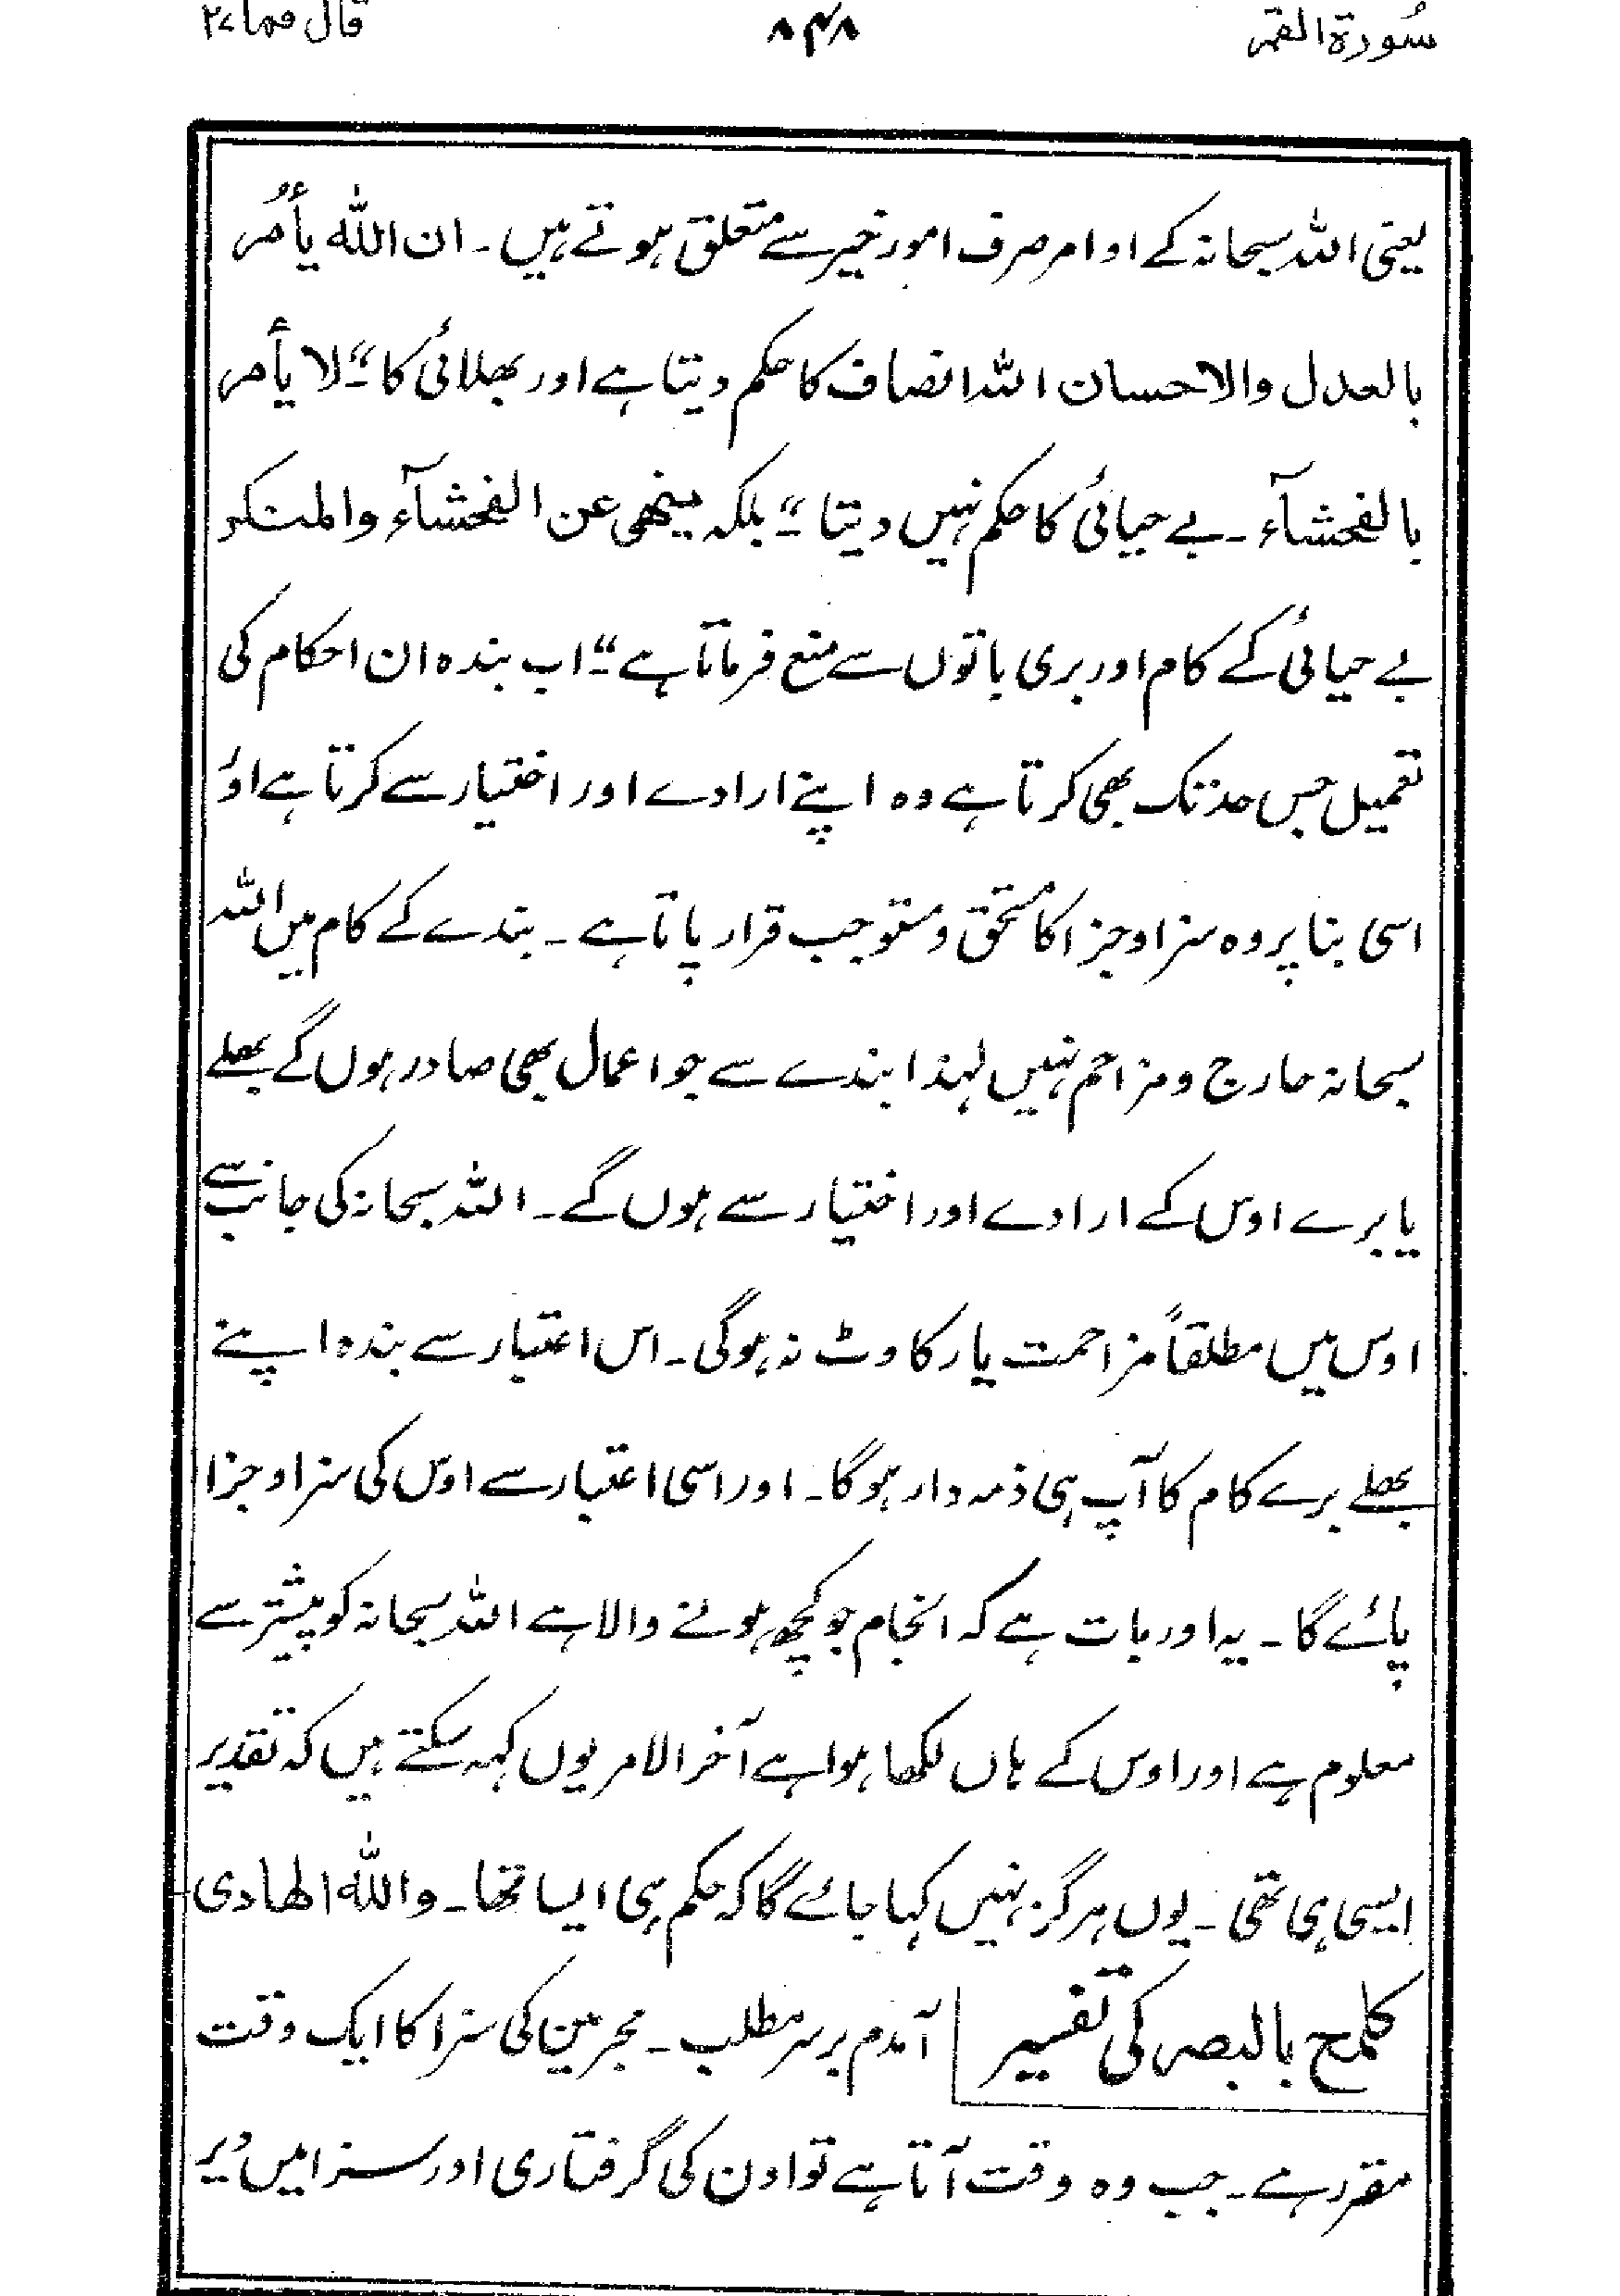 سُورۃ القمر ۸۴۸ قال فما ۲۷
یعنی اللہ سبحانہ کے اوامر صرف امور خیر سے متعلق ہوتے ہیں۔ ان اللہ یأمُر
بالعدل والاحسان اللہ انصاف کا حکم دیتا ہے اور بھلائی کا“۔ لا یأمر
بالفحشآء۔ بے حیائی کا حکم نہیں دیتا“۔ بلکہ ینھی عن الفحشآء والمنکر
بے حیائی کے کام اور بری باتوں سے منع فرماتا ہے“۔ اب بندہ ان احکام کی
تعمیل جس حد تک بھی کرتا ہے وہ اپنے ارادے اور اختیار سے کرتا ہے اور
اسی بنا پر وہ سزا و جزا کا مستحق و مستوجب قرار پاتا ہے۔ بندے کے کام میں اللہ
سبحانہ حارج و مزاحم نہیں لہذا بندے سے جو اعمال بھی صادر ہوں گے بھلے
یا برے اوس کے ارادے اور اختیار سے ہوں گے۔ اللہ سبحانہ کی جانب سے
اوس میں مطلقاً مزاحمت یا رکاوٹ نہ ہوگی۔ اس اعتبار سے بندہ اپنے
بھلے برے کام کا آپ ہی ذمہ دار ہوگا۔ اور اسی اعتبار سے اوس کی سزا و جزا
پائے گا۔ یہ اور بات ہے کہ انجام جو کچھ ہونے والا ہے اللہ سبحانہ کو پیشتر سے
معلوم ہے اور اوس کے ہاں لکھا ہوا ہے آخر الامر یوں کہہ سکتے ہیں کہ تقدیر
ایسی ہی تھی۔ یوں ہرگز نہیں کہا جائے گا کہ حکم ہی ایسا تھا۔ واللہ الھادی
کلمح بالبصر کی تفسیر آمدم برسر مطلب۔ مجرمین کی سزا کا ایک وقت
مقرر ہے۔ جب وہ وقت آتا ہے تو اون کی گرفتاری اور سزا میں دیر